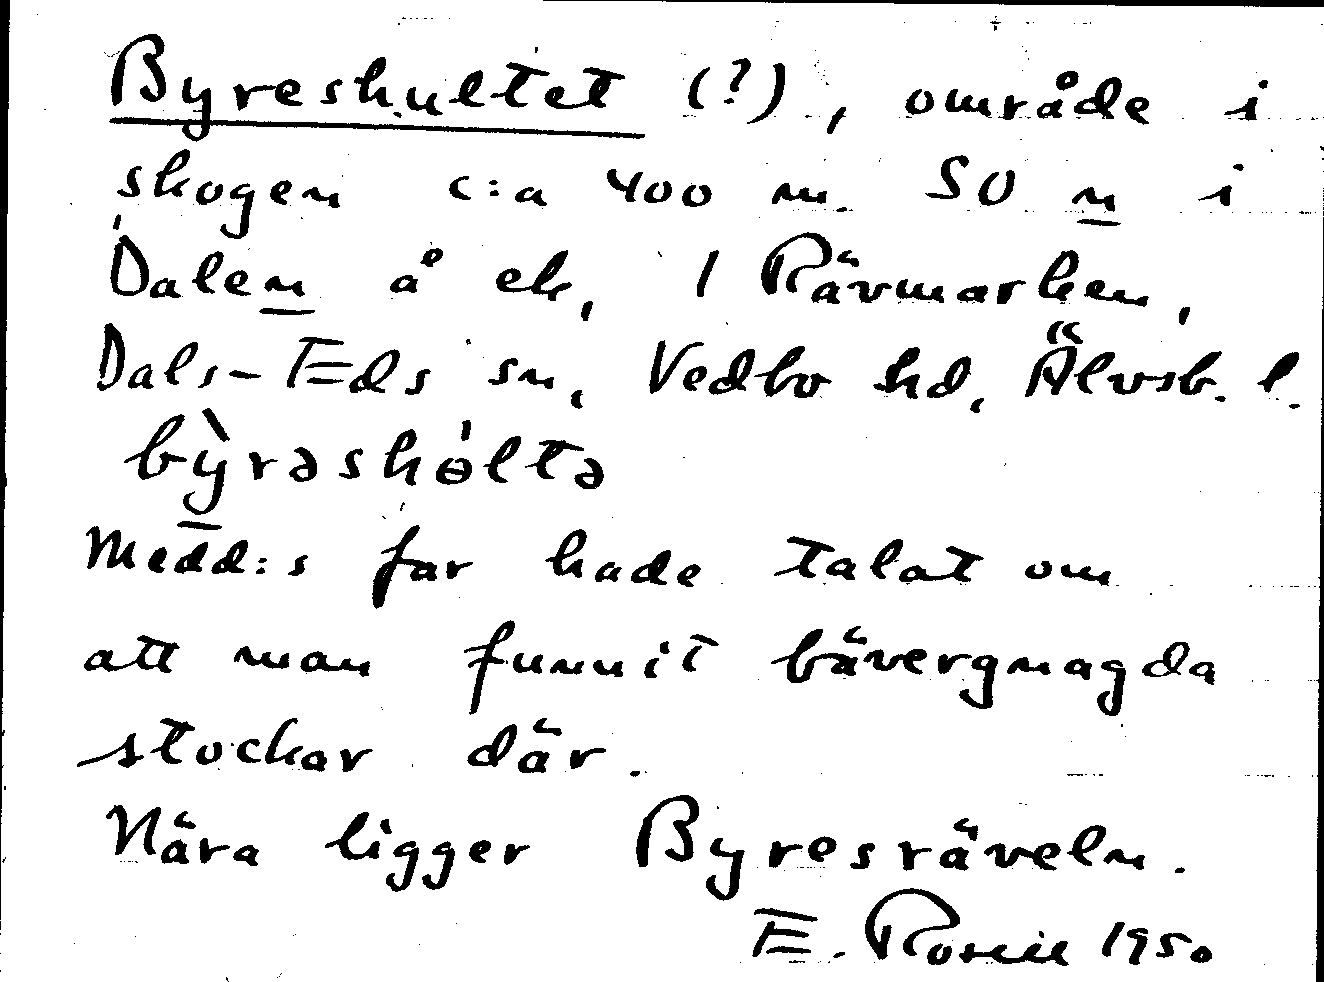 Byreshultet (?), område i
skogen c:a 400 m. SO n i
Dalen å ek. 1 Rävmarken,
Dals-Eds sn, Vedbo hd, Älvsb. l.
bỳrəshɵ́ltə
Medd:s far hade talat om
att man funnit bävergnagda
stockar där.
Nära ligger Byresräveln.
E. Rosell 1950